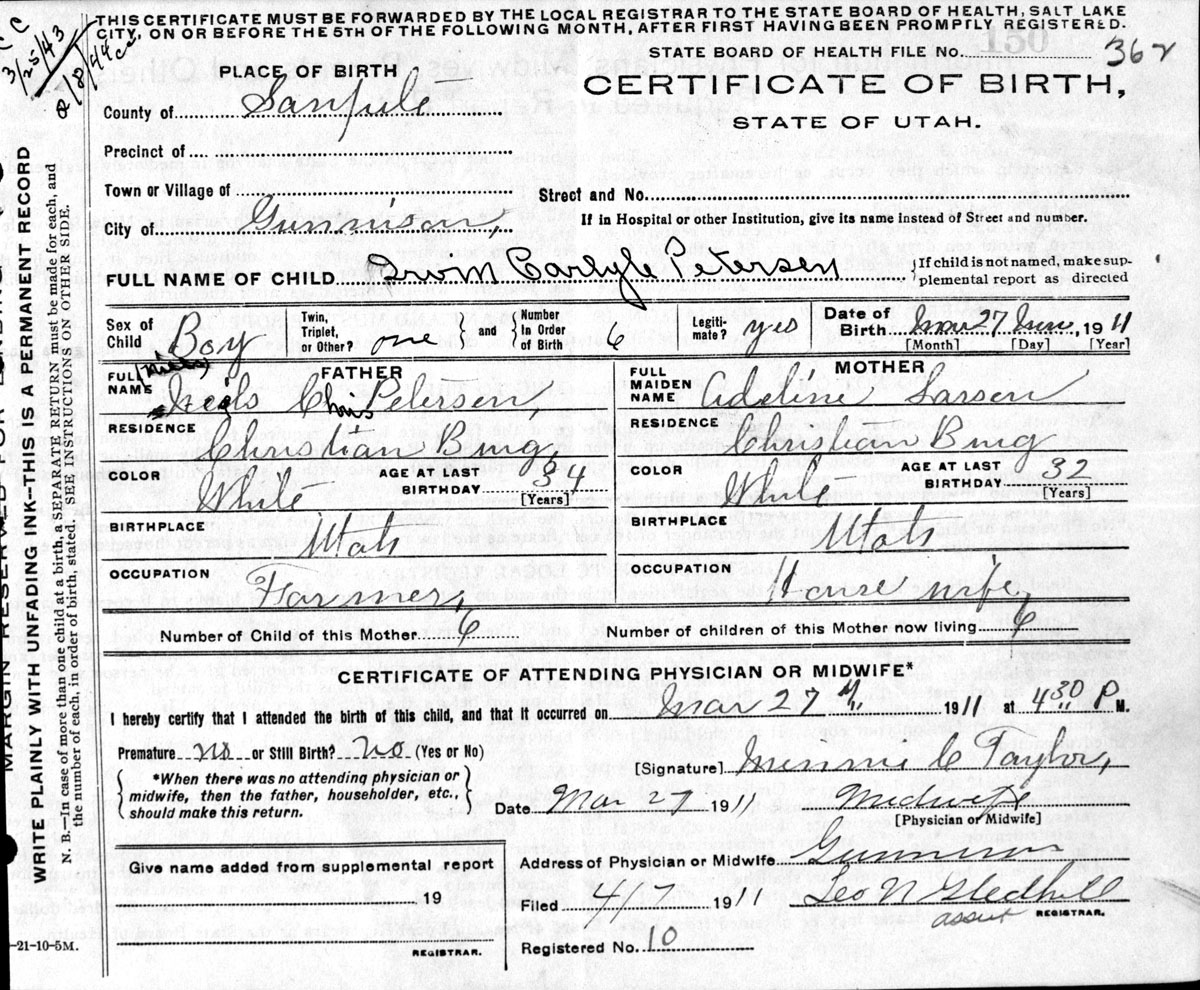 THIS CERTIFICATE MUST BE FORWARDED BY THE LOCAL REGISTRAR TO THE STATE BOARD OF HEALTH, SALT LAKE
CITY, ON OR BEFORE THE 5TH OF THE FOLLOWING MONTH, AFTER FIRST HAVING BEEN PROMPTLY REGISTERED.
3/25/43
8/8/44
STATE BOARD OF HEALTH FILE NO. 362
PLACE OF BIRTH
CERTIFICATE OF BIRTH,
STATE OF UTAH.
County of Sanpete
Precinct of
Town or Village of
Street and No.
City of Gunnison,
If in Hospital or other Institution, give its name instead of Street and number.
FULL NAME OF CHILD Irvin Carlyle Petersen
{If child is not named, make sup-
plemental report as directed
Sex of Child Boy Twin, Triplet, or Other? one } and { Number In Order of Birth 6 Legiti-mate? yes Date of Birth Mar 27 1911
[Month] [Day] [Year]
FATHER
FULL NAME Niels Chris Petersen,
RESIDENCE Christianburg,
COLOR White AGE AT LAST BIRTHDAY 34
[Years]
BIRTHPLACE Utah
OCCUPATION Farmer,
MOTHER
FULL MAIDEN NAME Adeline Larsen
RESIDENCE Christianburg
COLOR White AGE AT LAST BIRTHDAY 32
[Years]
BIRTHPLACE Utah
OCCUPATION House wife,
Number of Child of this Mother 6 Number of children of this Mother now living 6
CERTIFICATE OF ATTENDING PHYSICIAN OR MIDWIFE*
I hereby certify that I attended the birth of this child, and that it occurred on Mar 27 1911 at 4 30 P M.
Premature no or Still Birth? No (Yes or No)
{*When there was no attending physician or
midwife, then the father, householder, etc.,
should make this return.}
[Signature] Minnie C Taylor,
Date Mar 27 1911 Midwife
[Physician or Midwife]
Give name added from supplemental report
19
REGISTRAR.
Address of Physician or Midwife Gunnison
Filed 4/7 1911 Leo N Gledhill
assist REGISTRAR.
Registered No. 10
-21-10-5M.
MARGIN RESERVED FOR BINDING
WRITE PLAINLY WITH UNFADING INK—THIS IS A PERMANENT RECORD
N. B.—In case of more than one child at a birth, SEPARATE RETURN must be made for each, and
the number of each, in order of birth, stated. SEE INSTRUCTIONS ON OTHER SIDE.